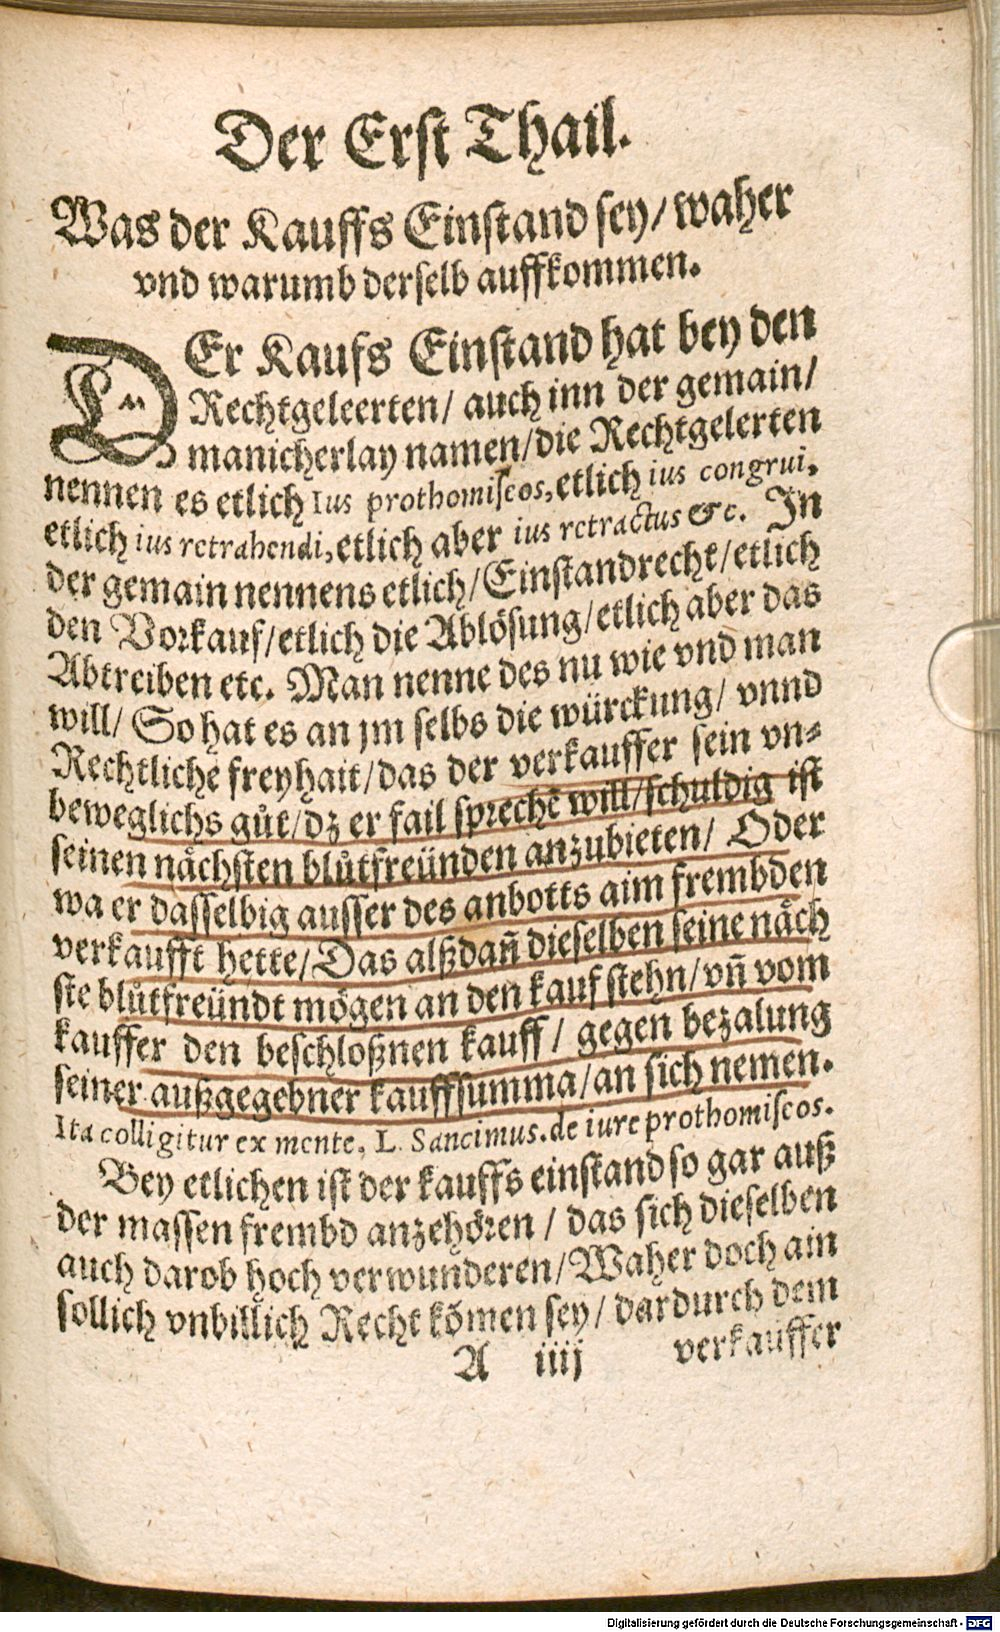 Der Erſt Thail.
Was der Kauffs Einſtand ſey/ waher
vnd warumb derſelb auffkommen.
DEr Kaufs Einſtand hat bey den
Rechtgeleerten/ auch inn der gemain/
manicherlay namen/die Rechtgelerten
nennen es etlich Ius prothomiſeos, etlich ius congrui.
etlich ius retrahendi, etlich aber ius retractus &c. In
der gemain nennens etlich/Einſtandrecht/etlich
den Vorkauf/etlich die Ablöſung/etlich aber das
Abtreiben etc. Man nenne des nu wie vnd man
will/ So hat es an jm ſelbs die würckung/ vnnd
Rechtliche freyhait/das der verkauffer ſein vn⸗
beweglichs gůt/dz er fail ſprechē will/ſchuldig iſt
ſeinen nächſten blůtfreünden anzubieten/ Oder
wa er daſſelbig auſſer des anbotts aim frembden
verkaufft hette/Das alßdañ dieſelben ſeine näch
ſte blůtfreündt mögen an den kauf ſtehn/vñ vom
kauffer den beſchloßnen kauff/ gegen bezalung
ſeiner außgegebner kauffſumma/an ſich nemen.
Ita colligitur ex mente, L. Sancimus. de iure prothomiſeos.
Bey etlichen iſt der kauffs einſtand ſo gar auß
der maſſen frembd anzehören / das ſich dieſelben
auch darob hoch verwunderen/Waher doch ain
ſollich vnbillich Recht kōmen ſey/ dardurch dem
A iiij verkauffer
Digitalisierung gefördert durch die Deutsche Forschungsgemeinschaft - DFG